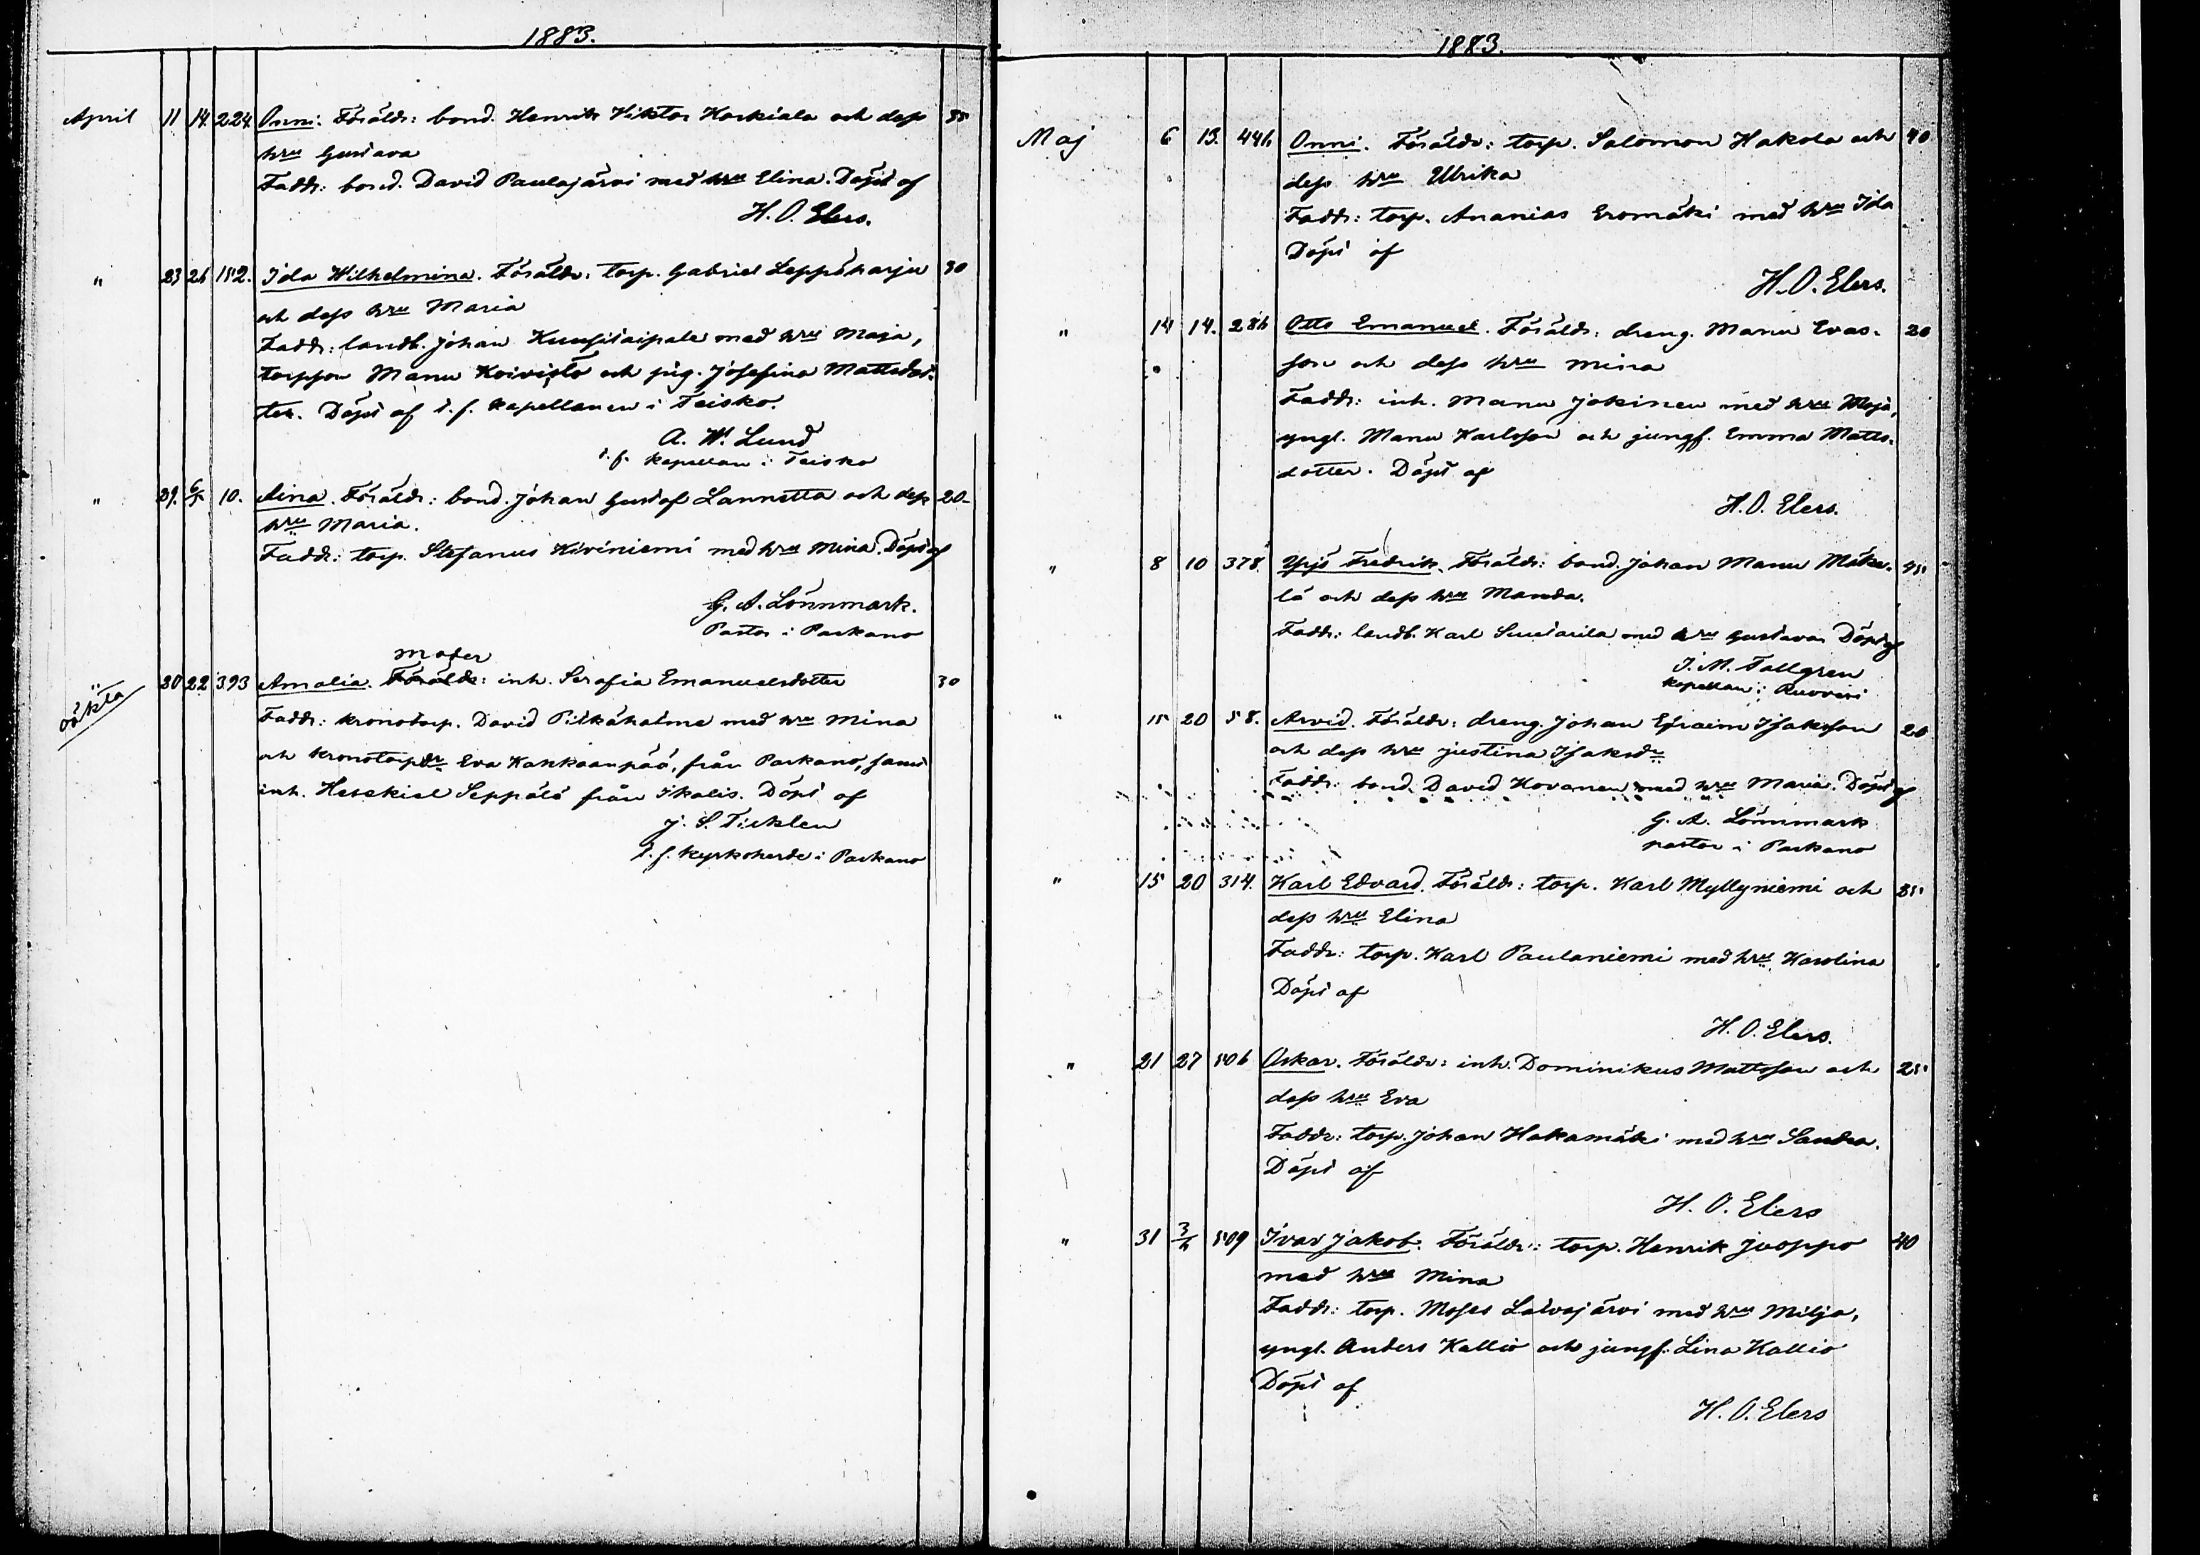 1883.
April 11 14. 224. Onni. Föräldr: bond. Henrik Viktor Koskiala och dess 35
hru Gustava
Faddr: bond. David Paulajärvi med hru Elina. Döpt af
H. O. Elers.
" 23 26 152. Ida Wilhelmina. Föräldr: torp. Gabriel Leppäharju 30
och dess hru Maria
Faddr: landb. Johan Kuusitaipale med hru Maja,
torpson Manu Koivisto och pig. Josefina Mattsdot-
ter. Döpt af t. f. kapellanen i Teisko.
A. W. Lund
t. f. kapellan i Teisko
" 29. 6/5 10. Aina. Föräldr: bond. Johan Gustaf Lannetta och dess 20
hru Maria.
Faddr: torp. Stefanus Kiviniemi med hru Mina. Döpt af
G. A. Lönnmark.
Pastor i Parkano
moder
oäkta 20 22 393 Amalia. Föräldr: inh. Serafia Emanuelsdotter 30
Faddr: kronotorp. David Pitkähalme med hru Mina
och kronotorpdr Eva Kankaanpää, från Parkano, samt
inh. Heskiel Seppälä från Ikalis. Döpt af
J. S. Ticklen
t. f. kyrkoherde i Parkano
1883.
Maj 6 13. 446 Onni. Föräldr: torp. Salomon Hakola och 40
dess hru Ulrika
Faddr: torp. Ananias Eromäki med hru Ida
Döpt af
H. O. Elers.
" 14 14. 286 Otto Emanuel. Föräldr: dreng. Manu Evas- 20
son och dess hru Mina
Faddr: inh. Manu Jokinen med hru Maja,
yngl. Manu Karlsson och jungf. Emma Matts-
dotter. Döpt af
H. O. Elers.
" 8 10 378. Yrjö Fredrik. Föräldr: bond. Johan Manu Mäke- 45
lä och dess hru Manda.
Faddr: landb. Karl Suutarila med hru Gustava. Döpt af
I. M. Tallgren
kapellan i Ruovesi
" 15 20 58. Arvid. Föräldr: dreng. Johan Efraim Isaksson 20
och dess hru Justina Isaksdr
Faddr: bond. David Kovanen med hru Maria. Döpt af
G. A. Lönnmark
pastor i Parkano
" 15 20 314. Karl Edvard. Föräldr: torp. Karl Myllyniemi och 35
dess hru Elina
Faddr: torp. Karl Paulaniemi med hru Karolina
Döpt af
H. O. Elers.
" 21 27 506 Oskar. Föräldr: inh. Dominikus Mattsson och 25
dess hru Eva
Faddr: torp. Johan Hakamäki med hru Sandra.
Döpt af
H. O. Elers
" 31 3/6 509 Ivar Jakob. Föräldr: torp. Henrik Juoppo 40
med hru Mina
Faddr: torp. Moses Latvajärvi med hru Milja,
yngl. Anders Kallio och jungf. Lina Kallio
Döpt af
H. O. Elers